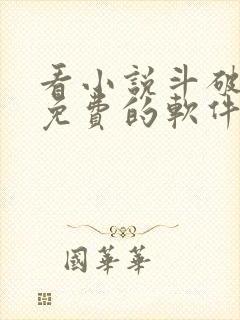 看小說斗破
免費的軟件
國華華